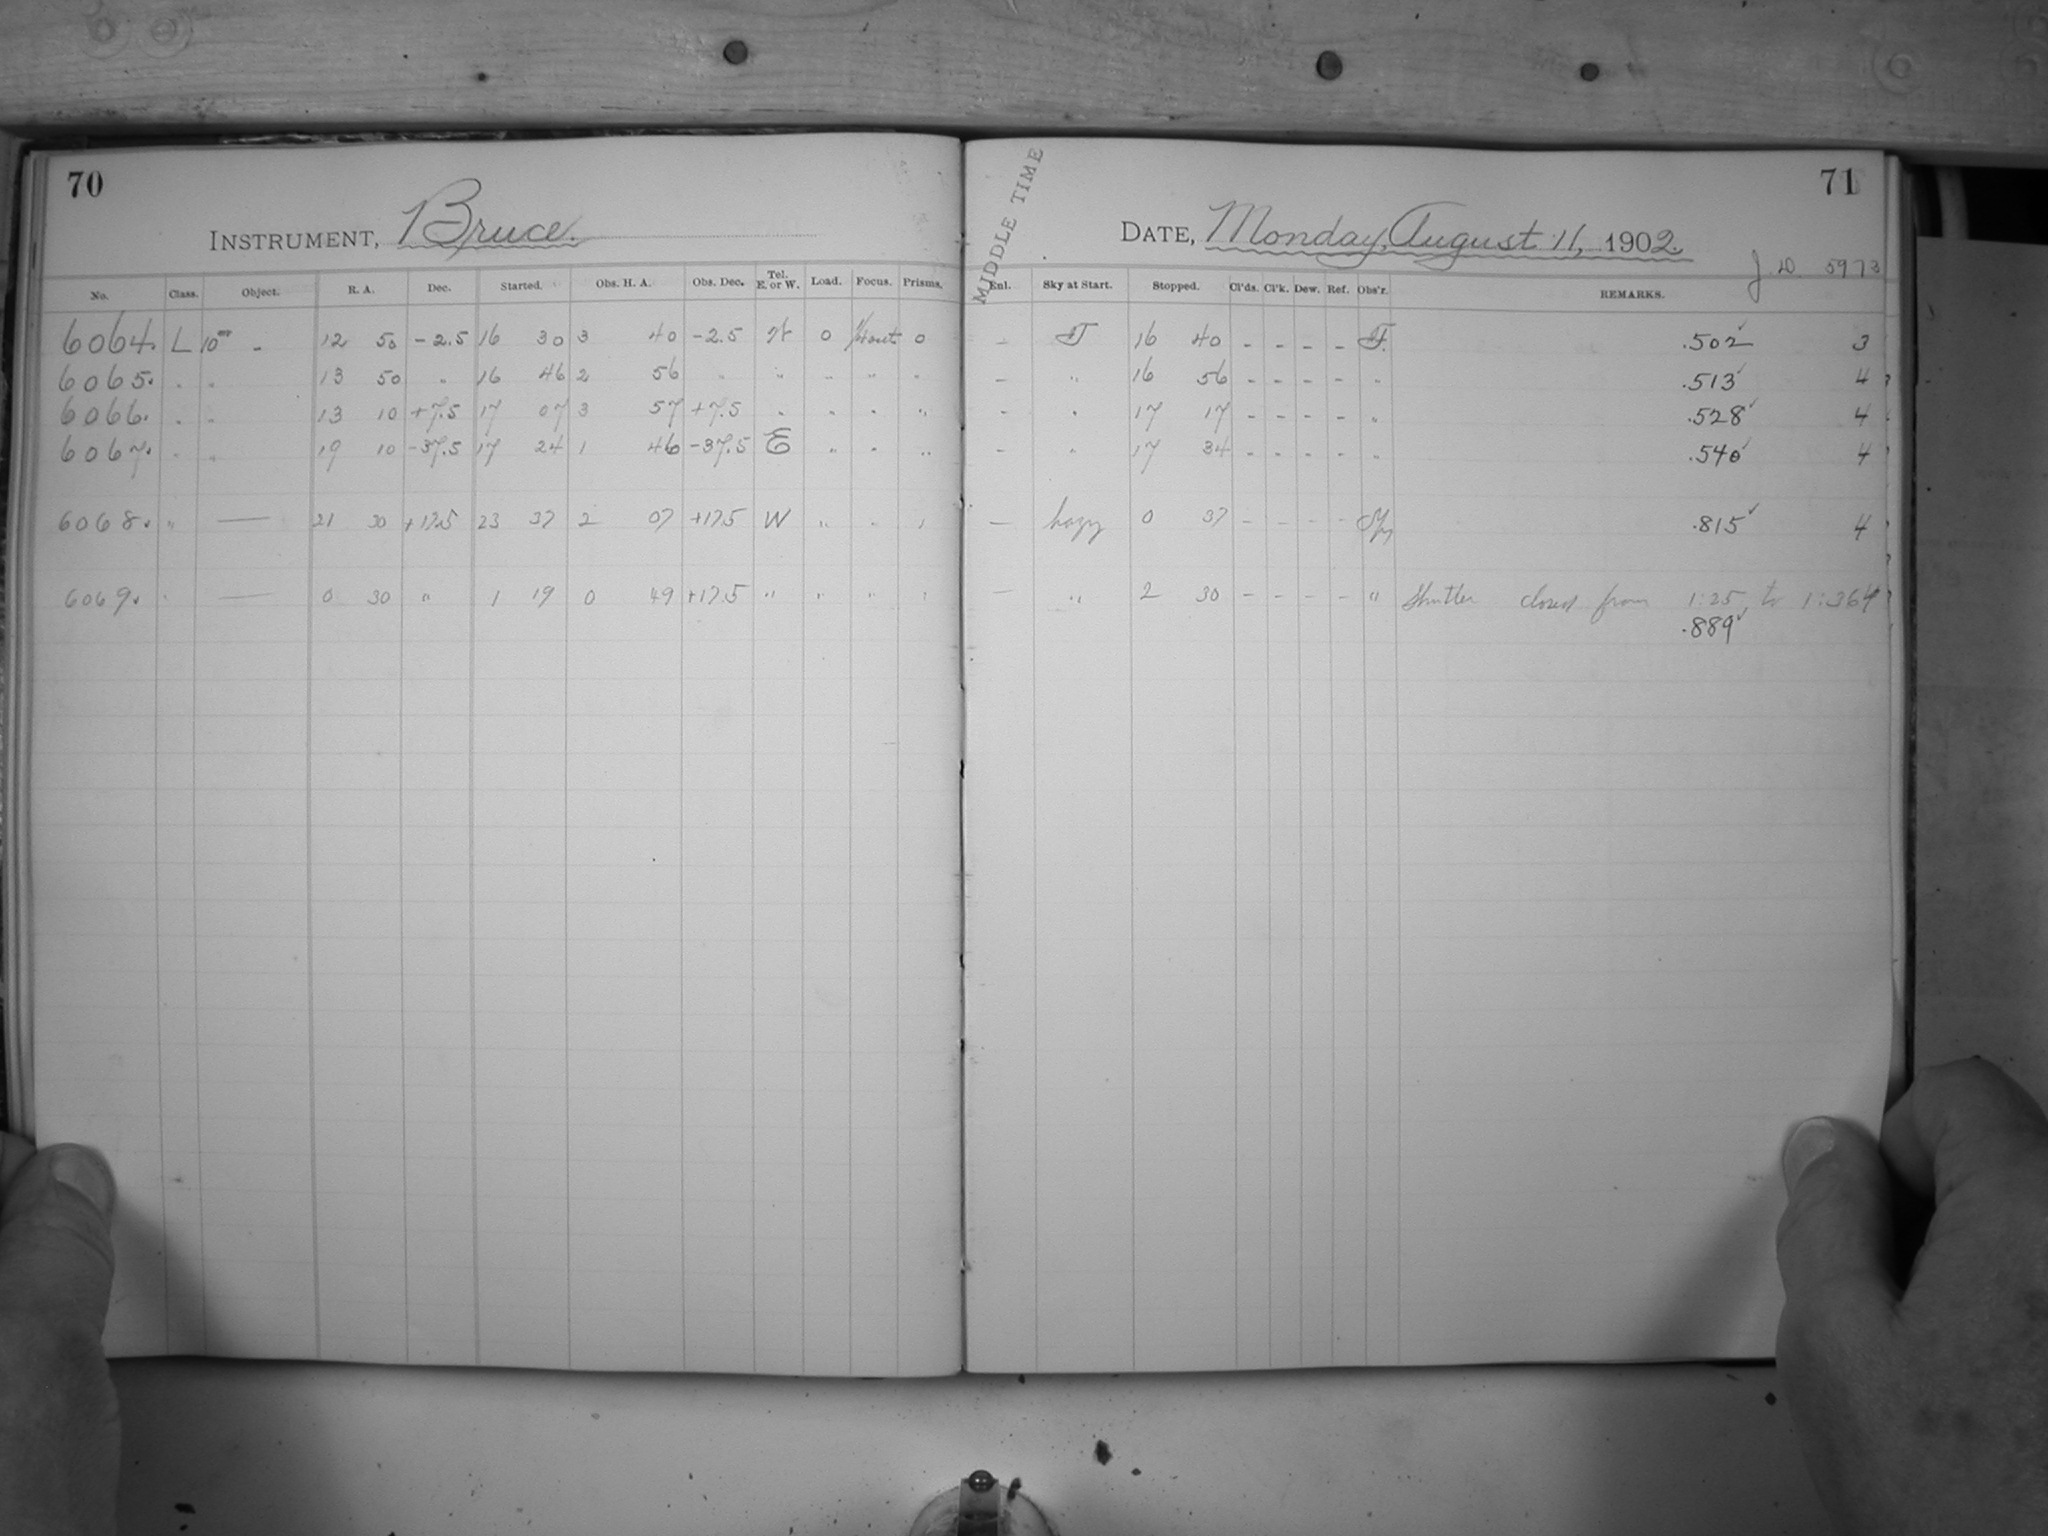 70
INSTRUMENT, Bruce.
No. Class. Object. R. A. Dec. Started. Obs. H. A. Obs. Dec. Tel. E. or W. Load. Focus. Prisms.
6064. L 10m - 12 50 -2.5 16 30 3 40 -2.5 W 0 0
6065. " " 13 50 " 16 46 2 56 " " " " "
6066. " " 13 10 +7.5 17 07 3 57 +7.5 " " " "
6067. " " 19 10 -37.5 17 24 1 46 -37.5 E " " "
6068. " — 21 30 +17.5 23 37 2 07 +17.5 W " " "
6069. " — 0 30 " 1 19 0 49 +17.5 " " " "
MIDDLE TIME
71
DATE, Monday, August 11, 1902.
J. D. 5973
Enl. Sky at Start. Stopped. Cl'ds. Cl'k. Dew. Ref. Obs'r. REMARKS.
- 16 40 - - - - F. .502 3
- " 16 56 - - - - " .513 4
- " 17 17 - - - - " .528 4
- " 17 34 - - - - " .540 4
- hazy 0 37 - - - - .815 4
- " 2 30 - - - - " Shutter closed from 1:25 to 1:36 4
.889